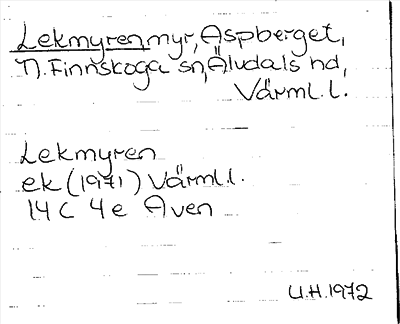 Lekmyren, myr, Aspberget,
N. Finnskoga sn, Älvdals hd,
Värml. l.
Lekmyren
ek (1971) Värml. l.
14 C 4 e Aven
U.H. 1972